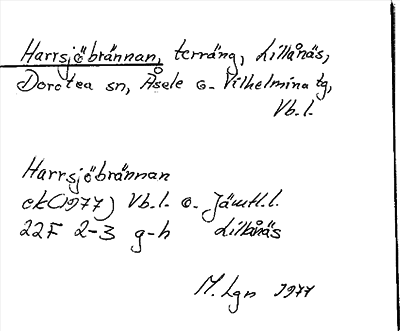 Harrsjöbrännan, terräng, Lillånäs,
Dorotea sn, Åsele o. Vilhelmina tg,
Vb.l.
Harrsjöbrännan
ek (1977) Vb.l. o. Jämtl.l.
22F 2-3 g-h Lillånäs
M. Lgn 1977